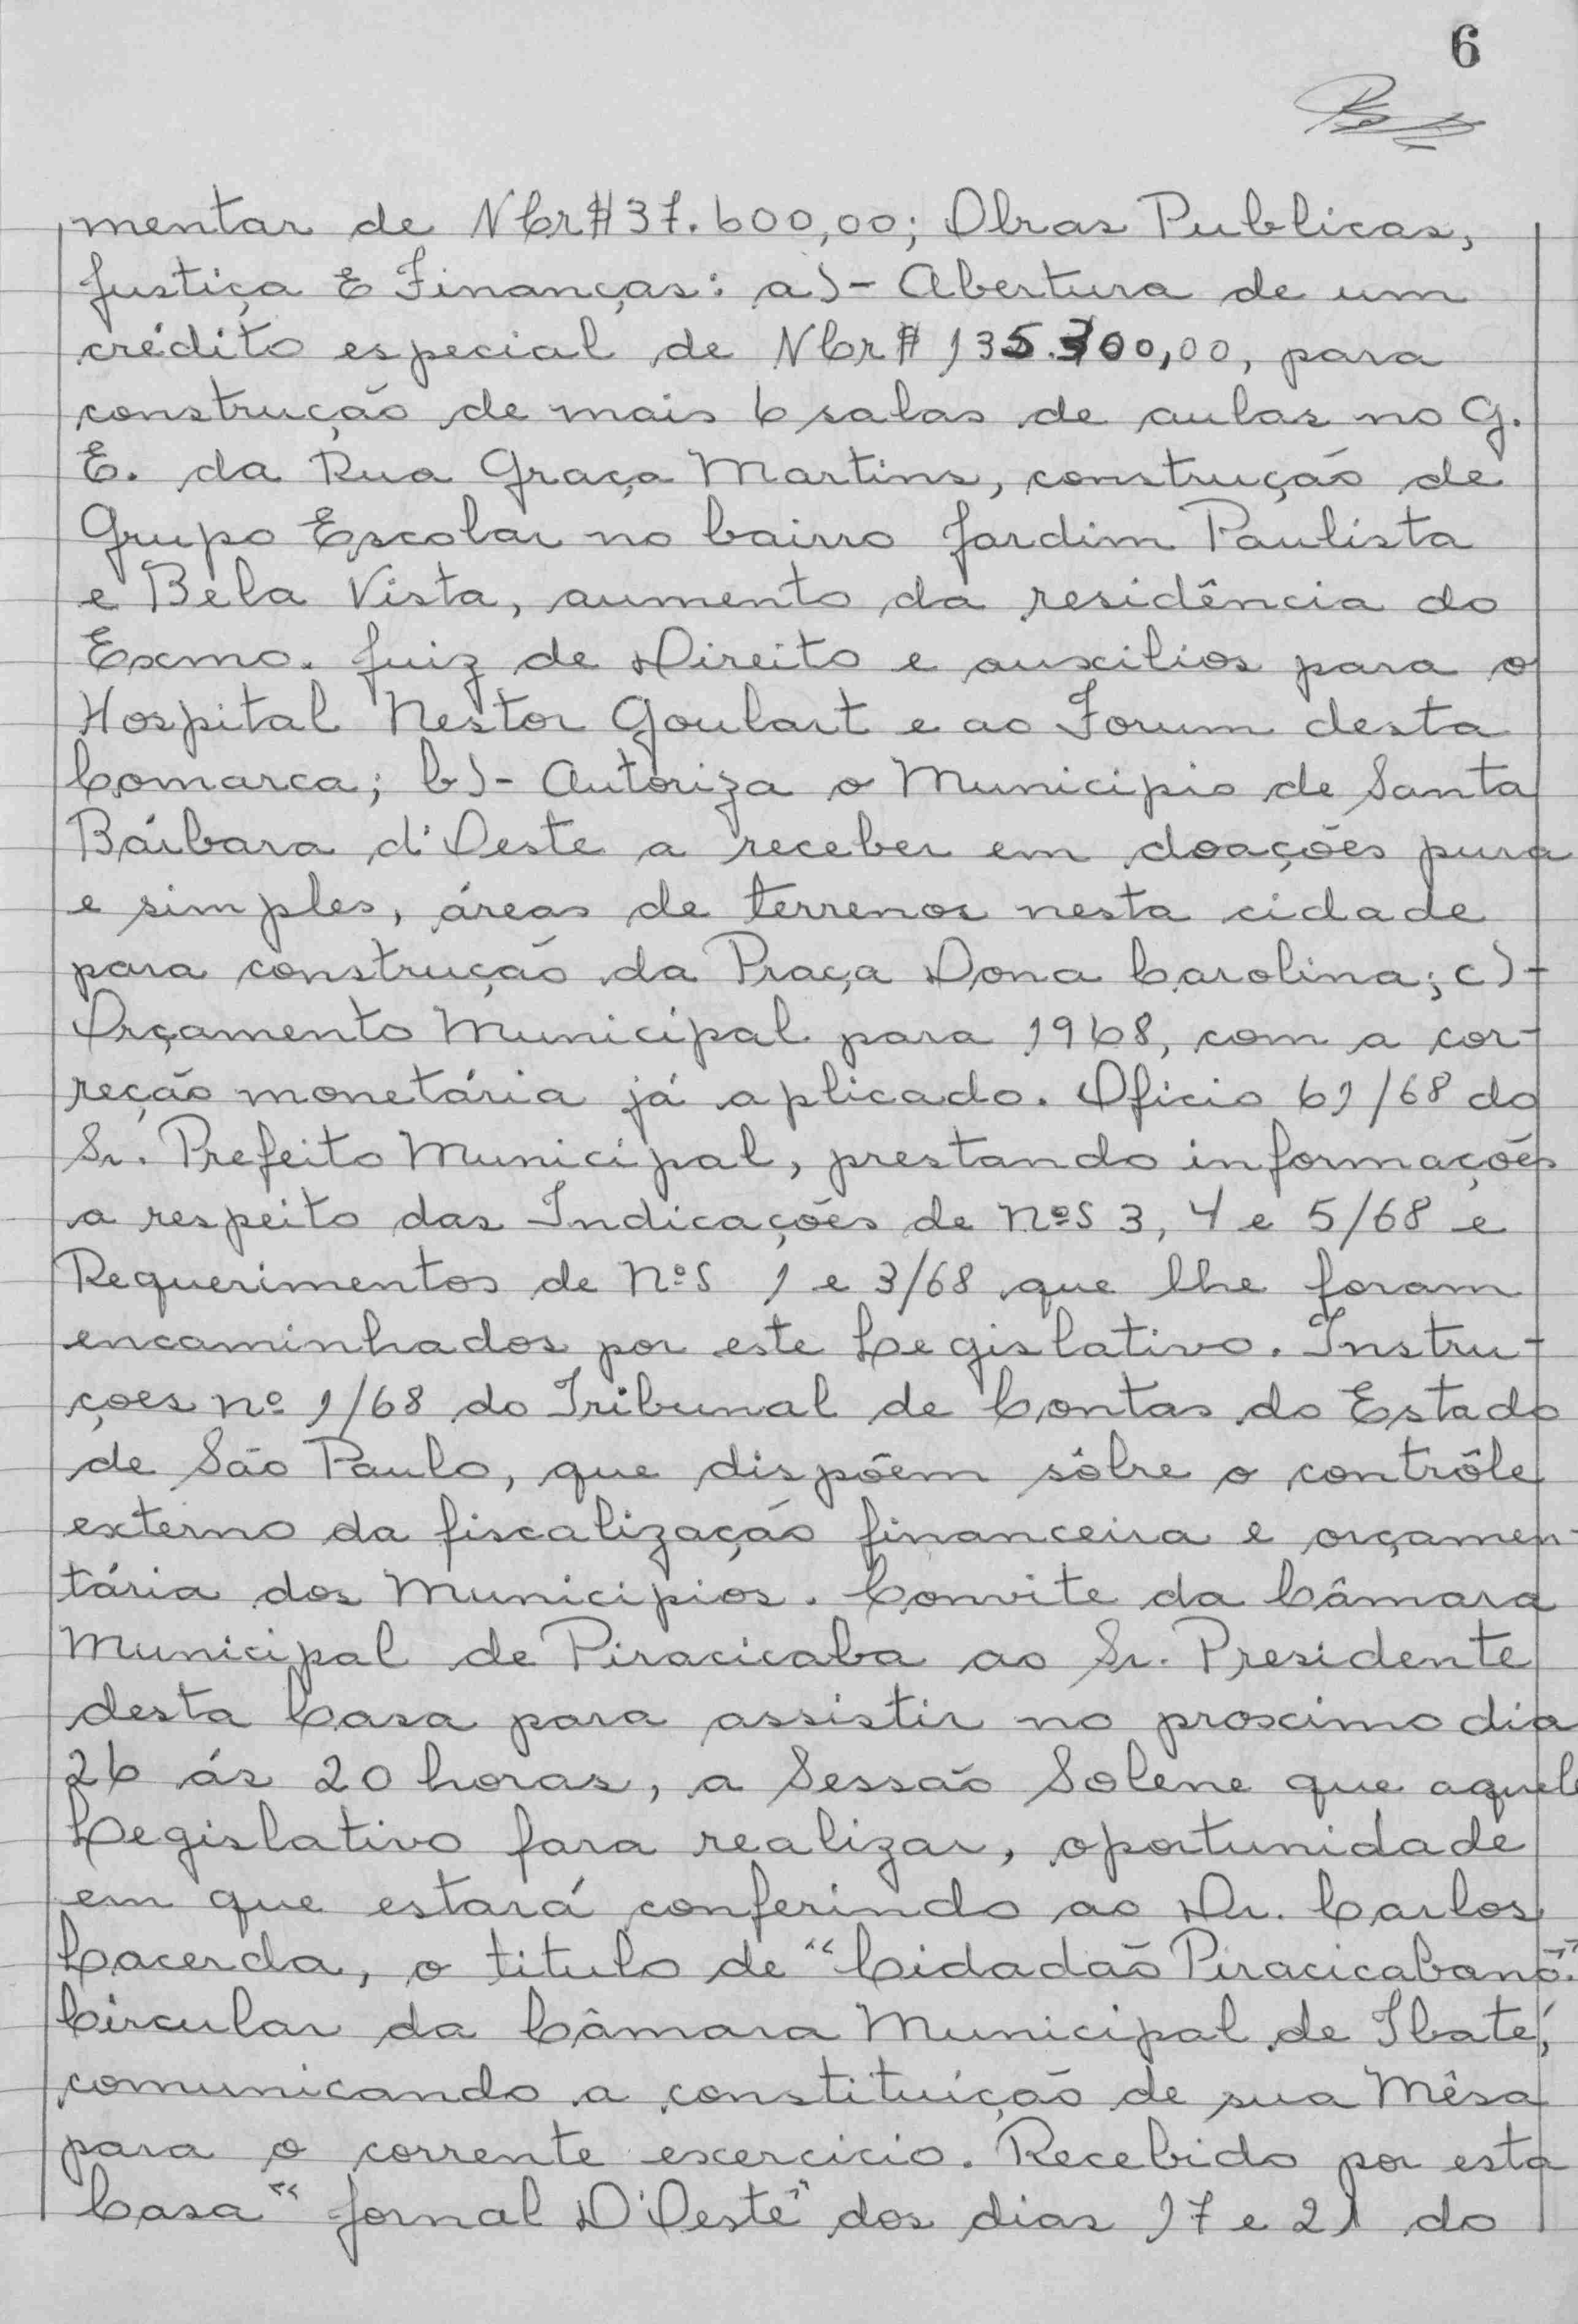 6
mentar de NCr$ 37.600,00; Obras Publicas,
Justiça E Finanças: a)- Abertura de um
crédito especial de NCr$ 135.300,00, para
construção de mais 6 salas de aulas no G.
E. da Rua Graça Martins, construção de
Grupo Escolar no bairro Jardim Paulista
e Bela Vista, aumento da residência do
Exmo. Juiz de Direito e auxilios para o
Hospital Nestor Goulart e ao Forum desta
Comarca; b)- Autoriza o Municipio de Santa
Bárbara d'Oeste a receber em doações pura
e simples, áreas de terrenos nesta cidade
para construção da Praça Dona Carolina; c)-
Orçamento Municipal para 1968, com a cor-
reção monetária já aplicado. Oficio 61/68 do
Sr. Prefeito Municipal, prestando informações
a respeito das Indicações de nºs 3, 4 e 5/68 e
Requerimentos de nºs 1 e 3/68 que lhe foram
encaminhados por este Legislativo. Instru-
çoes nº 1/68 do Tribunal de Contas do Estado
de São Paulo, que dispõem sôbre o contrôle
externo da fiscalização financeira e orçamen-
tária dos Municipios. Convite da Câmara
Municipal de Piracicaba ao Sr. Presidente
desta Casa para assistir no proximo dia
26 ás 20 horas, a Sessão Solene que aquele
Legislativo fara realizar, oportunidade
em que estará conferindo ao Dr. Carlos
Lacerda, o titulo de "Cidadão Piracicabano".
Circular da Câmara Municipal de Ibaté,
comunicando a constituição de sua Mêsa
para o corrente excercicio. Recebido por esta
Casa "Jornal D'Oeste" dos dias 17 e 21 do